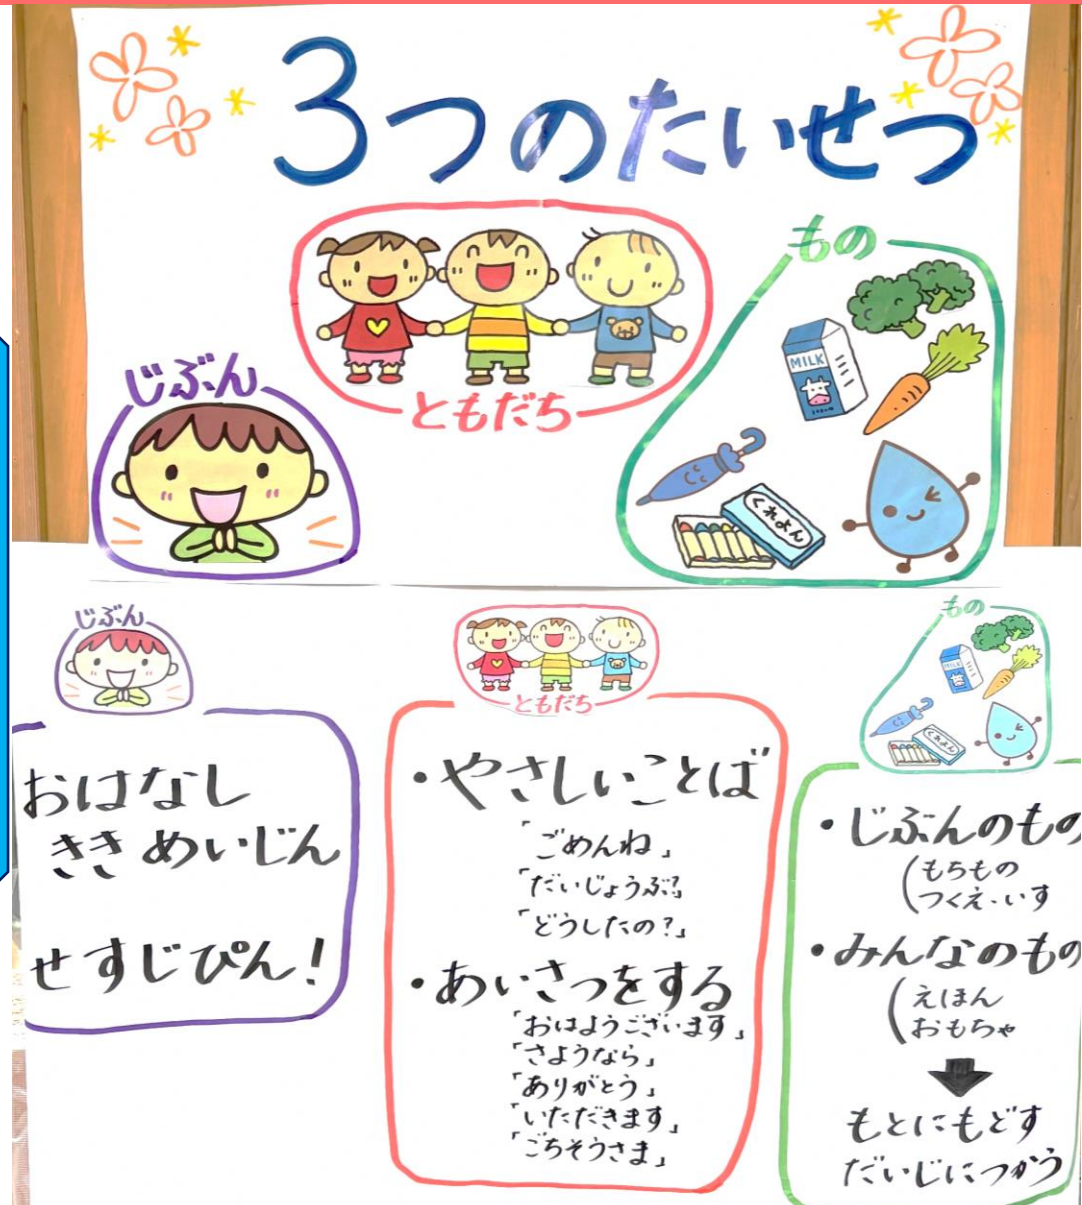 3つのたいせつ
もの
MILK
じぶん
ともだち
くれよん
じぶん
おはなし
ききめいじん
せすじぴん!
ともだち
・やさしいことば
「ごめんね」
「だいじょうぶ?」
「どうしたの?」
・あいさつをする
「おはようございます」
「さようなら」
「ありがとう」
「いただきます」
「ごちそうさま」
もの
MILK
くれよん
・じぶんのもの
(もちもの
つくえ・いす
・みんなのもの
(えほん
おもちゃ
もとにもどす
だいじにつかう